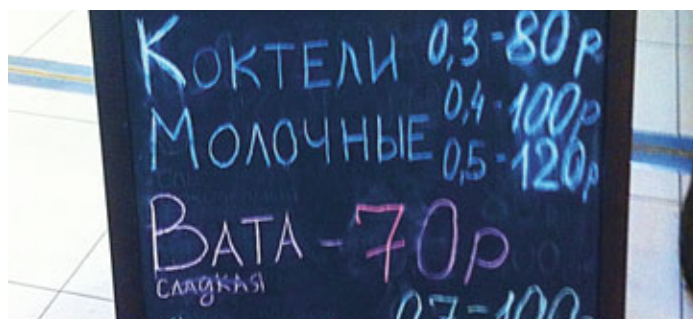 Коктели 0,3 - 80р
Молочные 0,4 - 100р
0,5 - 120р
Вата - 70р
сладкая
0,7 - 100р